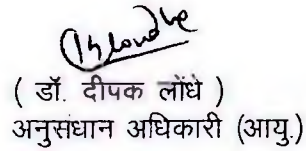 ( डॉ. दीपक लोंधे )
अनुसंधान अधिकारी (आयु.)